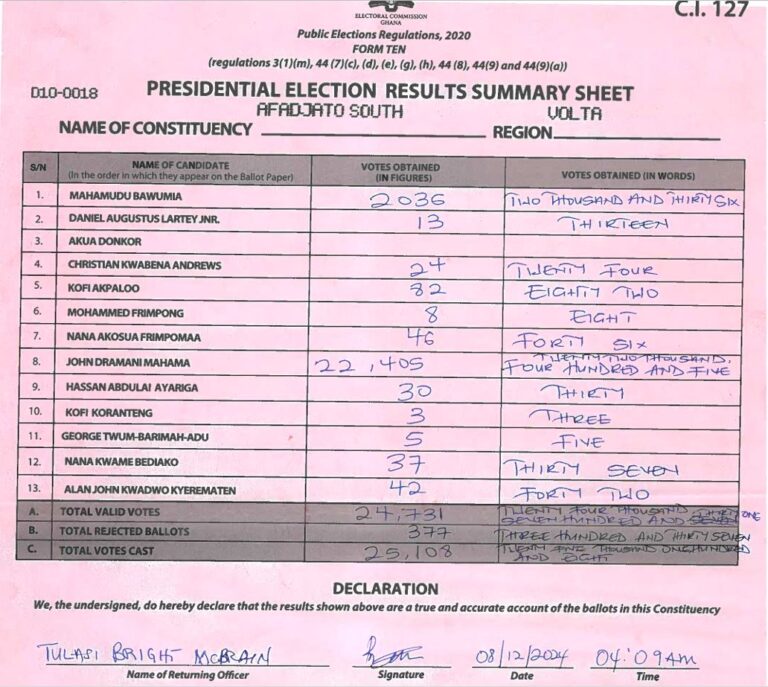 C.I. 127
ELECTORAL COMMISSION
GHANA
Public Elections Regulations, 2020
FORM TEN
(regulations 3(1)(m), 44 (7)(c), (d), (e), (g), (h), 44 (8), 44(9) and 44(9)(a))
D10-0018 PRESIDENTIAL ELECTION RESULTS SUMMARY SHEET
NAME OF CONSTITUENCY AFADJATO SOUTH REGION VOLTA
S/N NAME OF CANDIDATE (In the order in which they appear on the Ballot Paper) VOTES OBTAINED (IN FIGURES) VOTES OBTAINED (IN WORDS)
1. MAHAMUDU BAWUMIA 2036 TWO THOUSAND AND THIRTY SIX
2. DANIEL AUGUSTUS LARTEY JNR. 13 THIRTEEN
3. AKUA DONKOR
4. CHRISTIAN KWABENA ANDREWS 24 TWENTY FOUR
5. KOFI AKPALOO 82 EIGHTY TWO
6. MOHAMMED FRIMPONG 8 EIGHT
7. NANA AKOSUA FRIMPOMAA 46 FORTY SIX
8. JOHN DRAMANI MAHAMA 22,405 TWENTY TWO THOUSAND, FOUR HUNDRED AND FIVE
9. HASSAN ABDULAI AYARIGA 30 THIRTY
10. KOFI KORANTENG 3 THREE
11. GEORGE TWUM-BARIMAH-ADU 5 FIVE
12. NANA KWAME BEDIAKO 37 THIRTY SEVEN
13. ALAN JOHN KWADWO KYEREMATEN 42 FORTY TWO
A. TOTAL VALID VOTES 24,731 TWENTY FOUR THOUSAND SEVEN HUNDRED AND THIRTY ONE
B. TOTAL REJECTED BALLOTS 377 THREE HUNDRED AND THIRTY SEVEN
C. TOTAL VOTES CAST 25,108 TWENTY FIVE THOUSAND ONE HUNDRED AND EIGHT
DECLARATION
We, the undersigned, do hereby declare that the results shown above are a true and accurate account of the ballots in this Constituency
TULASI BRIGHT MCBRAIN 08/12/2024 04:09AM
Name of Returning Officer Signature Date Time